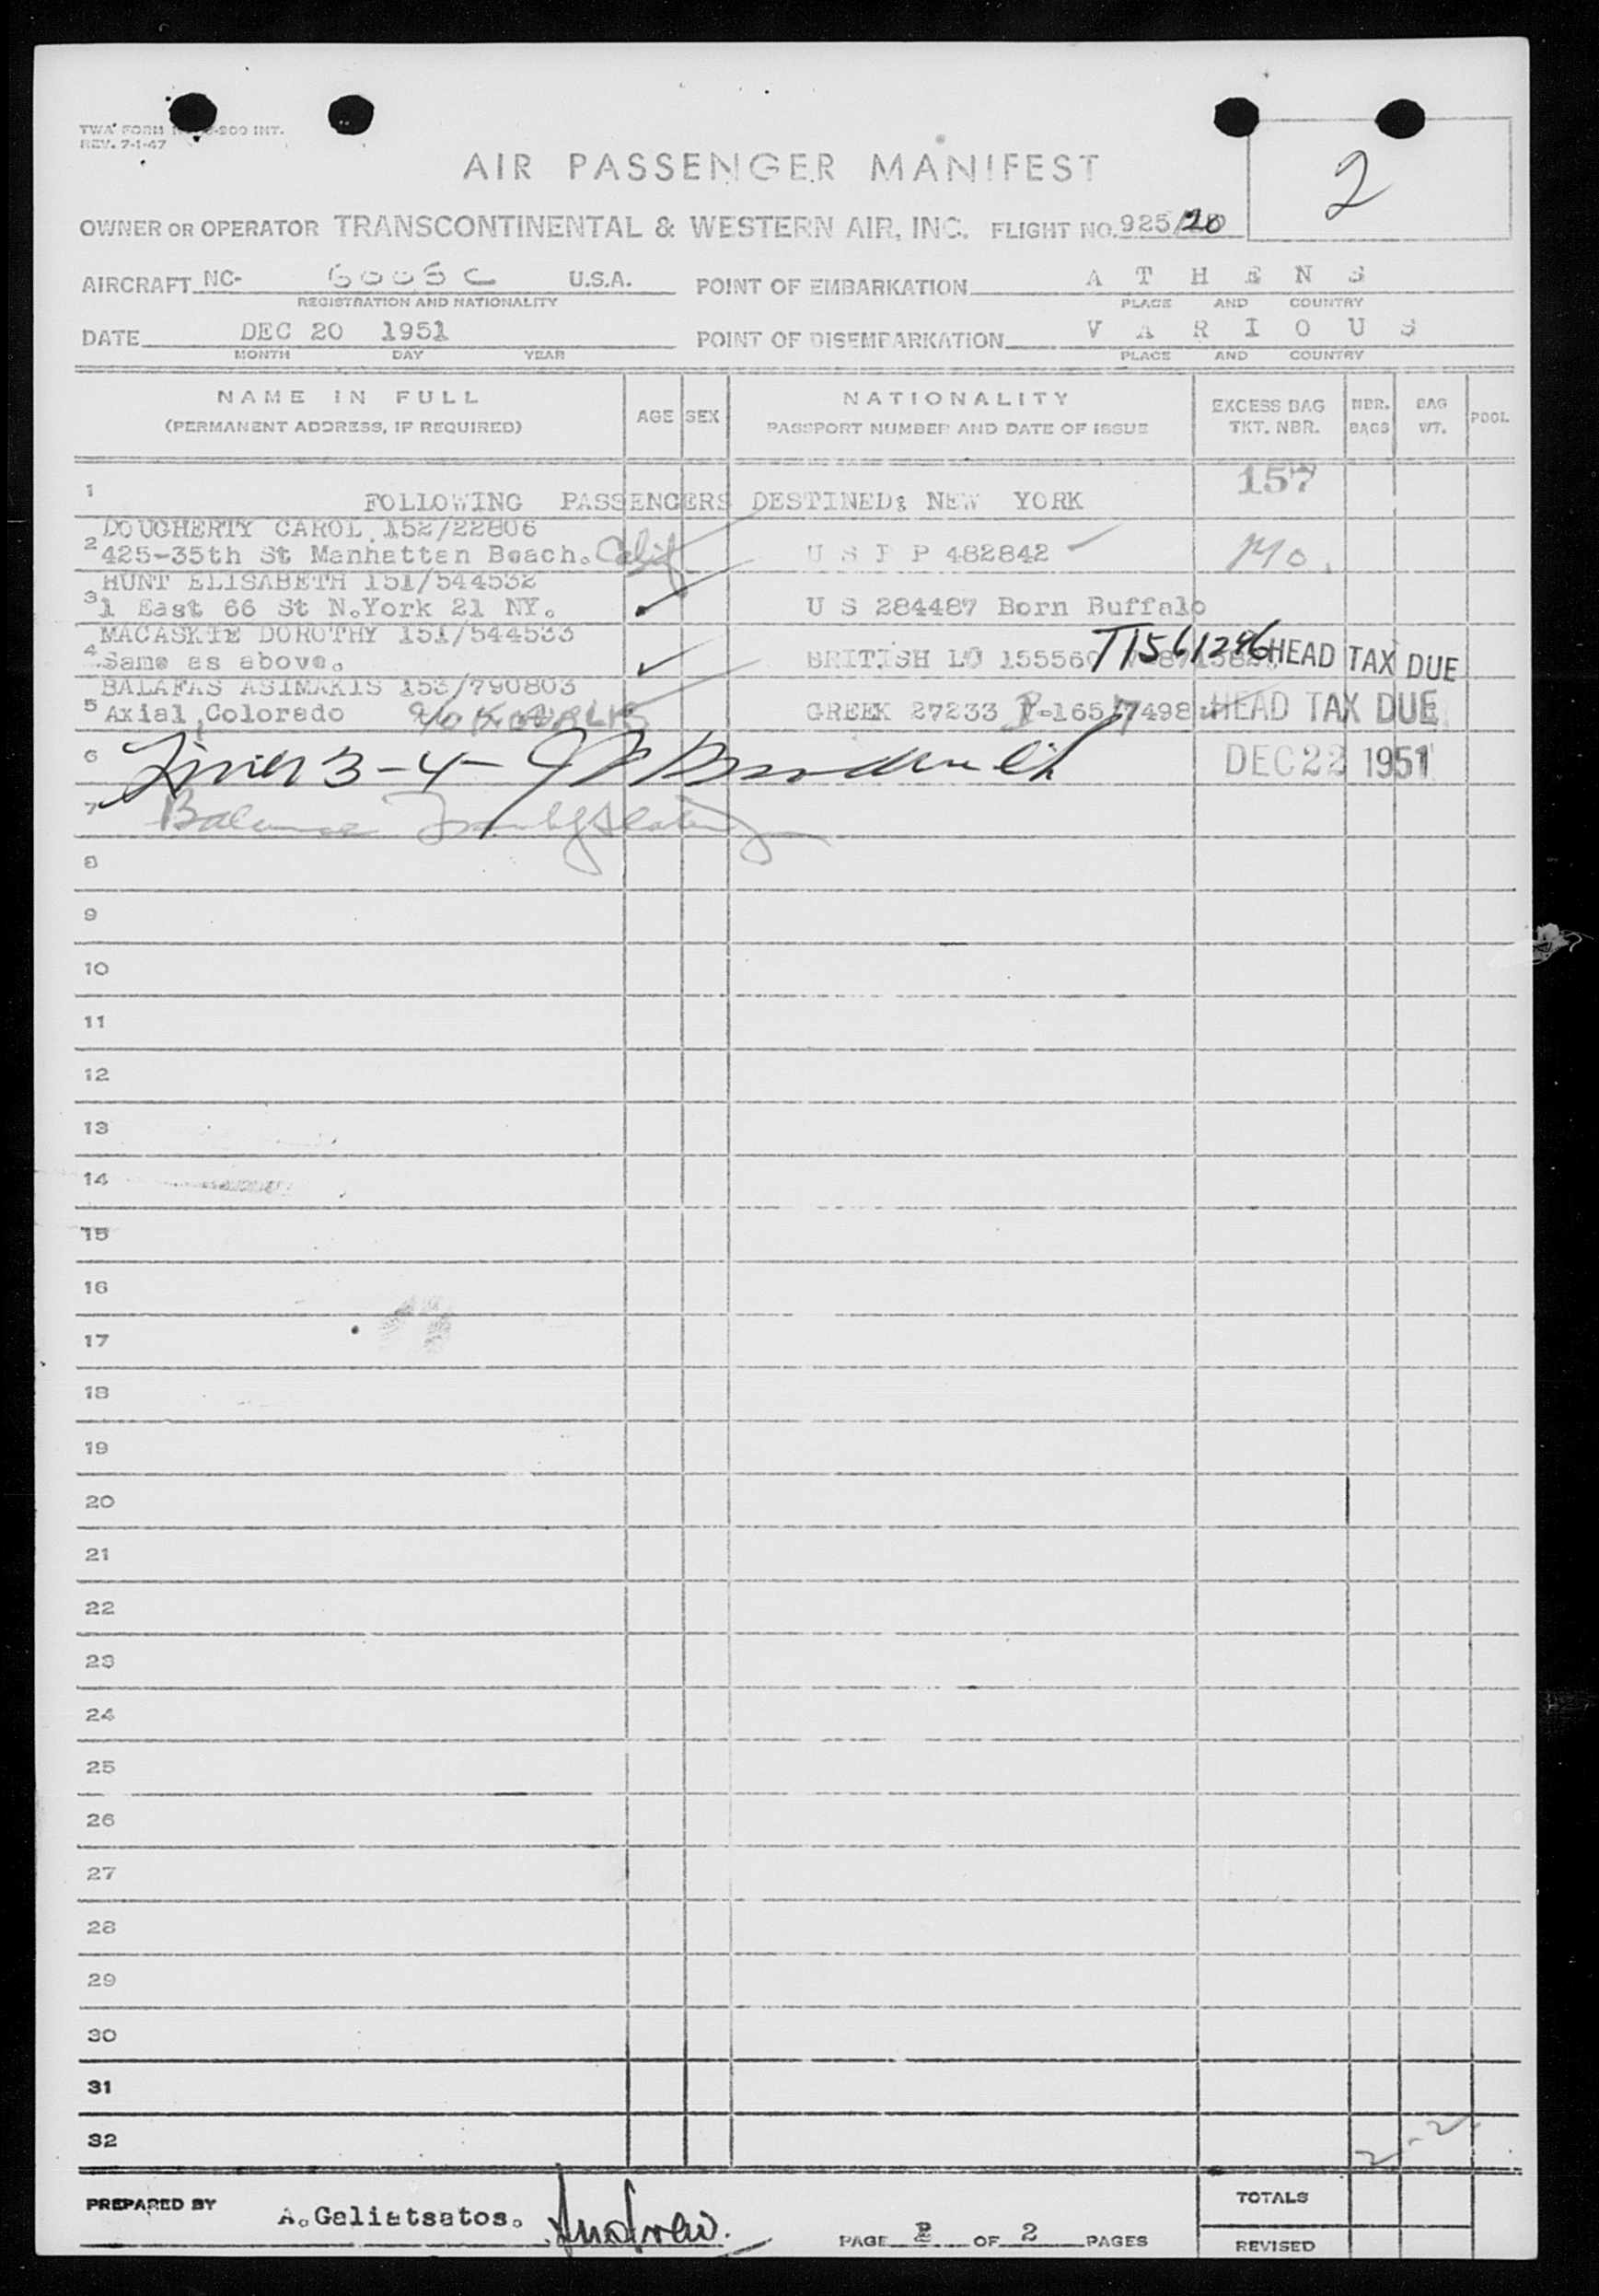 TWA FORM -200 INT.
REV. 7-1-47
2
AIR PASSENGER MANIFEST
OWNER OR OPERATOR TRANSCONTINENTAL & WESTERN AIR, INC. FLIGHT NO. 925/20
AIRCRAFT NC- U.S.A. POINT OF EMBARKATION A T H E N S
REGISTRATION AND NATIONALITY PLACE AND COUNTRY
DATE DEC 20 1951 POINT OF DISEMBARKATION V A R I O U S
MONTH DAY YEAR PLACE AND COUNTRY
NAME IN FULL AGE SEX NATIONALITY EXCESS BAG NBR. BAG POOL
(PERMANENT ADDRESS, IF REQUIRED) PASSPORT NUMBER AND DATE OF ISSUE TKT. NBR. BAGS WT.
157
1 FOLLOWING PASSENGERS DESTINED: NEW YORK
DOUGHERTY CAROL 152/22806
2 425-35th St Manhatten Beach. Calif U S P P 482842
HUNT ELISABETH 151/544532
3 1 East 66 St N.York 21 NY. U S 284487 Born Buffalo
MACASKIE DOROTHY 151/544533
4 Same as above. BRITISH LO 155560 T1561246 HEAD TAX DUE
BALAFAS ASIMAKIS 153/790803
5 Axial Colorado GREEK 27233 HEAD TAX DUE
6 Lines 3-4- DEC 22 1951
7 Balance
8
9
10
11
12
13
14
15
16
17
18
19
20
21
22
23
24
25
26
27
28
29
30
31
32
PREPARED BY A.Galiatsatos. PAGE 2 OF 2 PAGES
TOTALS
REVISED